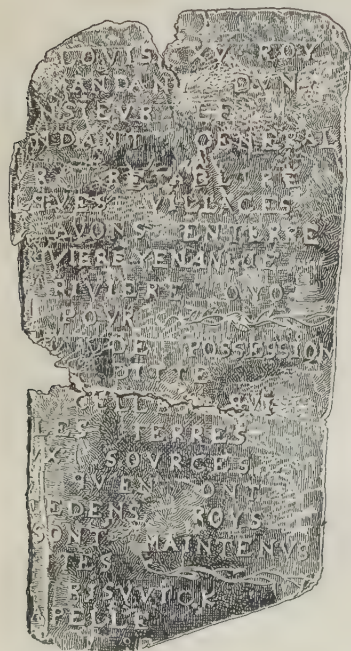 LOUIS XV ROY
MANDANT DVN
NSIEVR
NDANT GENERAL
RETABLIRE
QVES VILLAGES
AVONS ENTERRE
VIERE YENANGUE
RIVIERE OYO
POVR
DE POSSESSION
DITTE
CELLES QVI
LES TERRES
VX SOVRCES
QVEN ONT
CEDENS ROYS
SONT MAINTENVS
TES
RISVVICK
APELLE